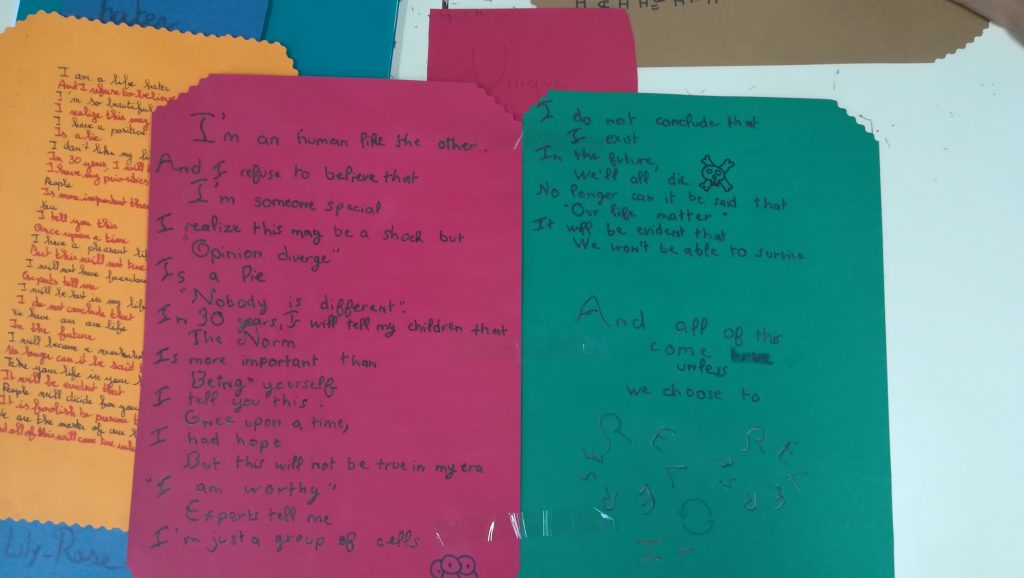 hater
Unique
I am a life hater
And I refuse to believe
I'm so beautiful
I realize this may
I have a positive
Is a lie
I don't like my
In 30 years, I will
I have my priorities
People
Is more important than
You
I tell you this
Once upon a time
I have a pleasant
But this will not true
I will not have freedom
Experts tell me
I will be lost in my life
I do not conclude that
We have our life
In the future
I will become a
No longer can it be said
Take your life in your
It will be evident that
People will decide for you
It is foolish to presume
We are the master of our
And all of this will come true
Lily-Rose
I'm an human like the other.
And I refuse to believe that
I'm someone special
I realize this may be a shock but
"Opinion diverge"
Is a lie
"Nobody is different".
In 30 years, I will tell my children that
The Norm
Is more important than
Being yourself
I tell you this :
Once upon a time,
I had hope
But this will not be true in my era
"I am worthy"
Experts tell me
I'm just a group of cells
I do not conclude that
I exist
In the future,
We'll all die
No longer can it be said that
"Our life matter"
It will be evident that
We won't be able to survive
And all of this
come
unless
we choose to
REVERSE
It